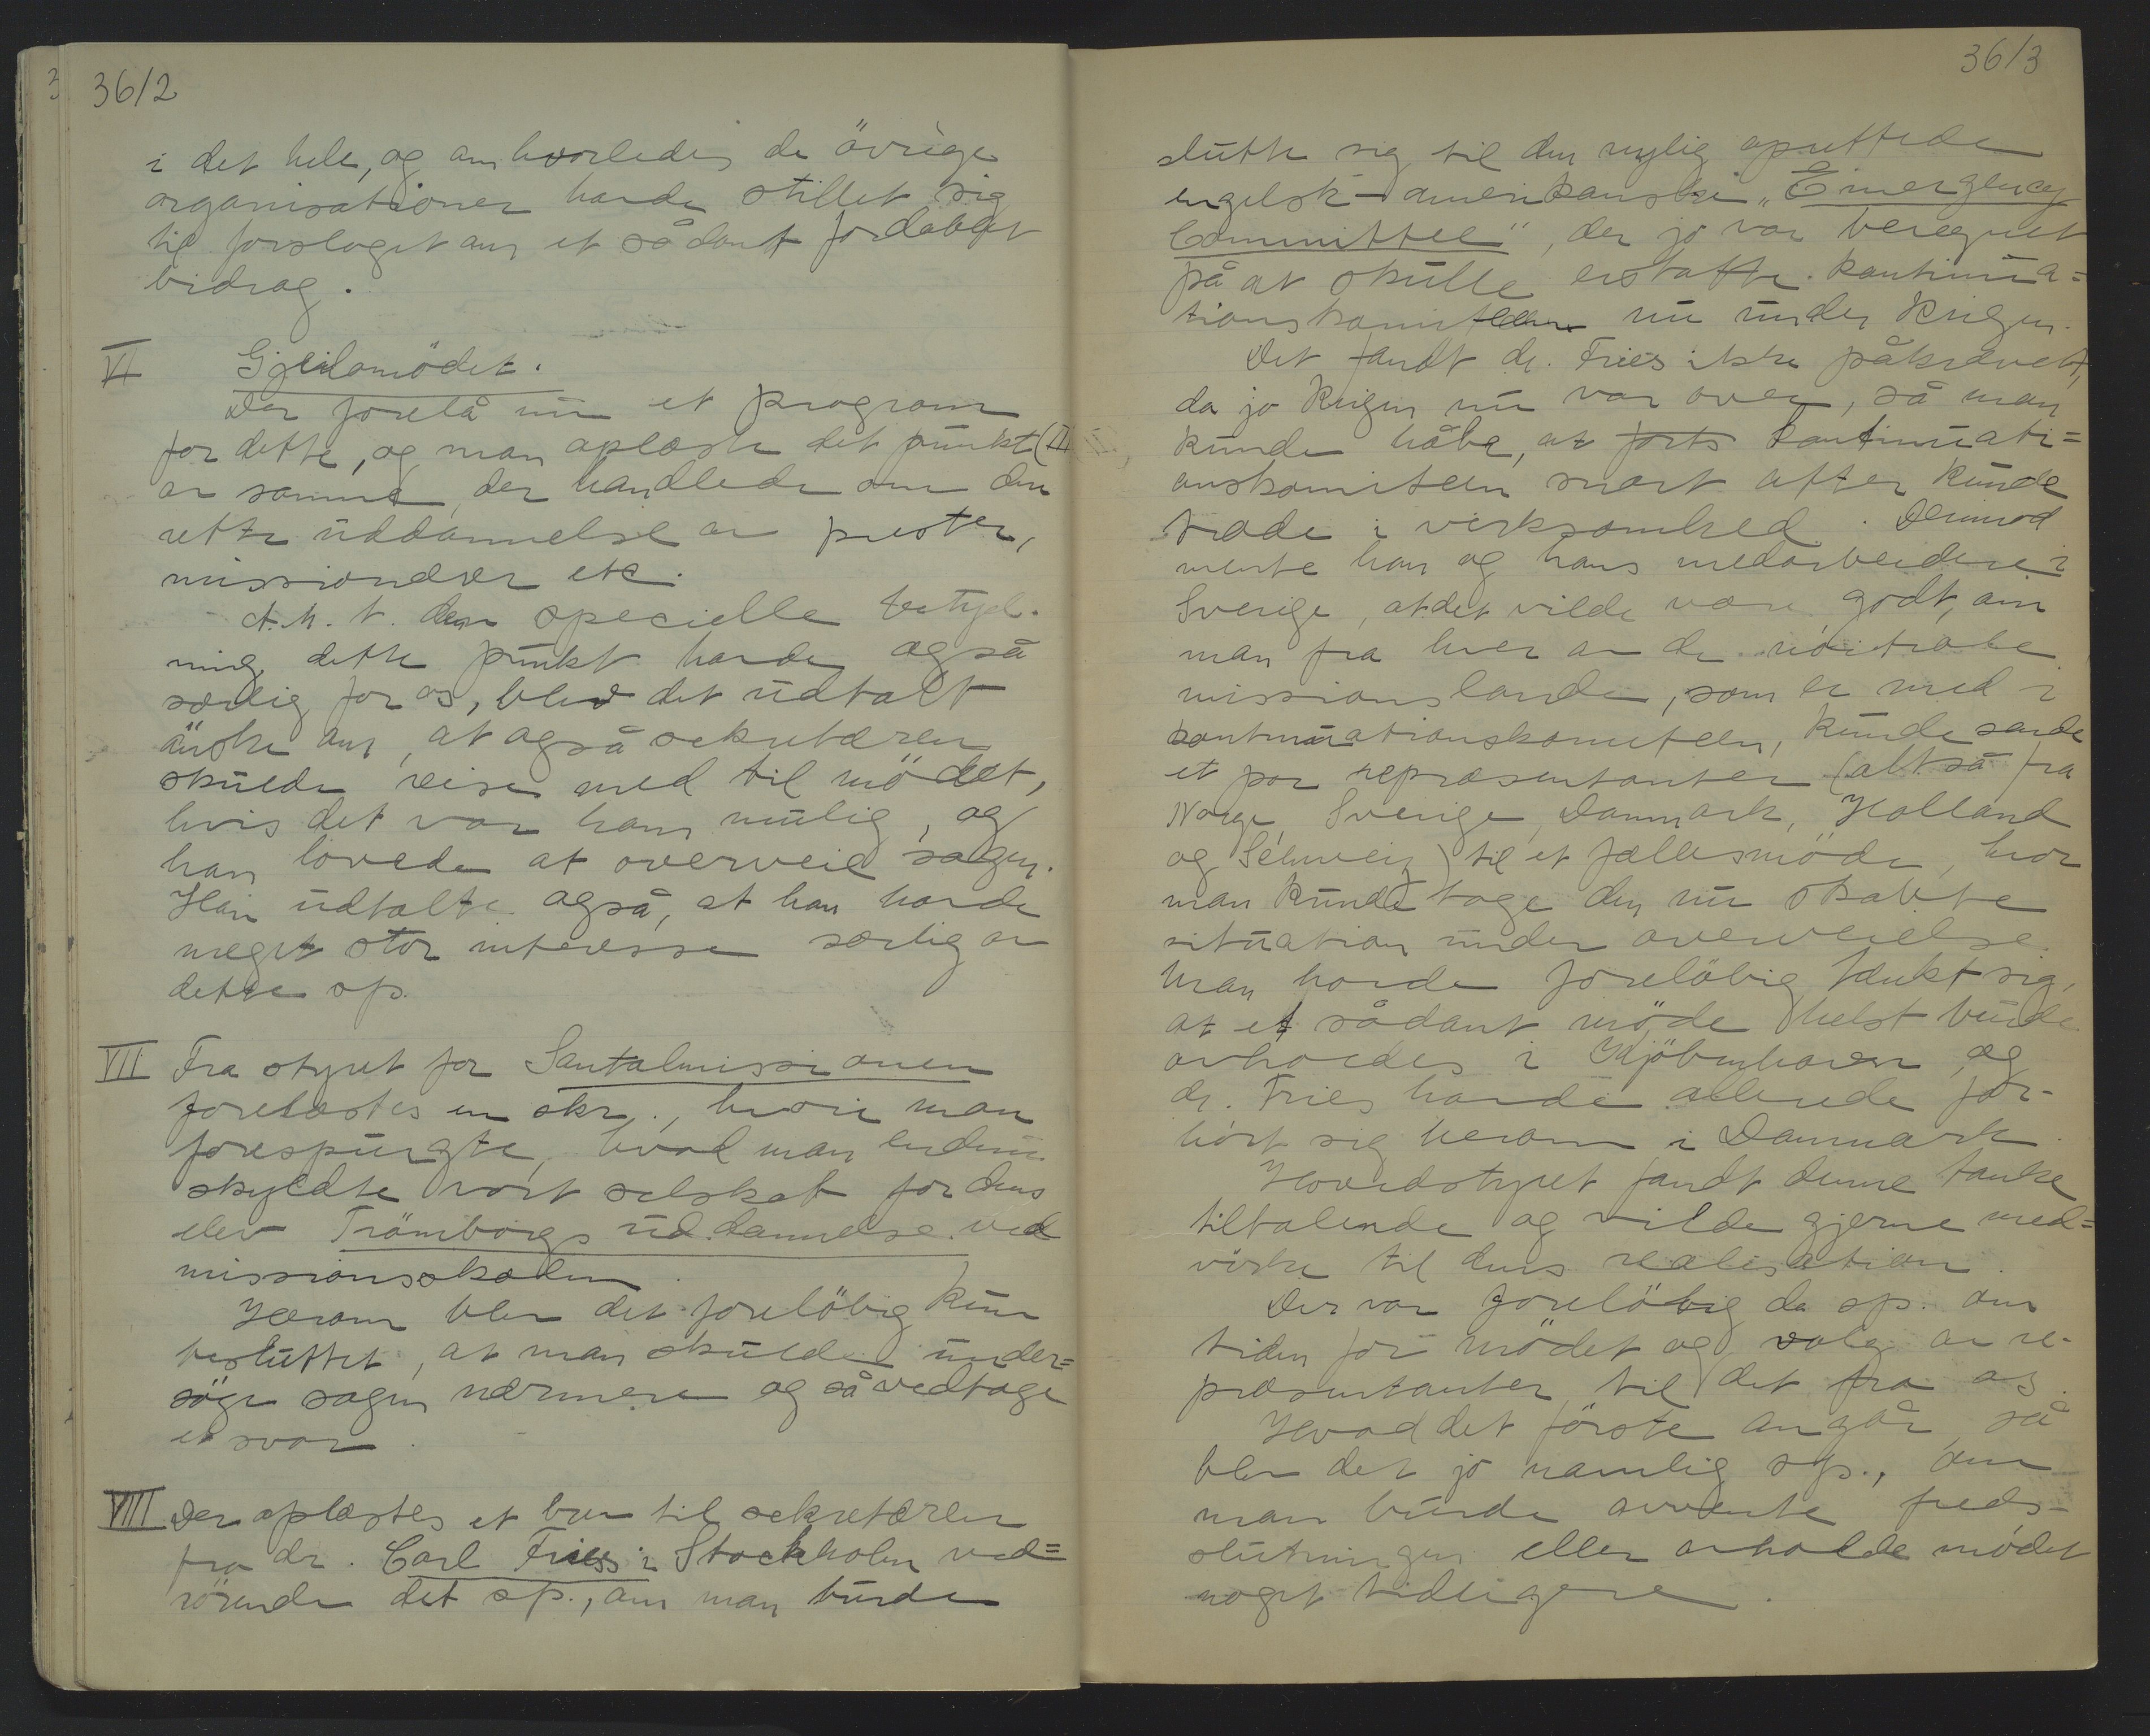 36/2
i det hele, og om hvorledes de övrige
organisationer havde stillet sig
til forslaget om et sådant fordoblet
bidrag.
VI Gjeilomödet.
Der forelå nu et program
for dette, og man oplæste det punkt (II
av samme, der handlede om den
rette uddannelse av prester,
missionærer etc.
A. h. t. den specielle betyd-
ning dette punkt havde også
særlig for os, blev det udtalt
önske om, at også sekretæren
skulde reise med til mödet,
hvis det var ham mulig, og
han lovede at overveie sagen.
Han udtalte også, at han havde
meget stor interesse særlig av
dette sp.
VII Fra styret for Santalmissionen
forelæstes en skr., hvori man
forespurgte, hvad man endnu
skyldte vort selskab for dens
elev Trömborgs uddannelse ved
missionsskolen.
Herom blev det foreløbig kun
besluttet, at man skulde under=
söge sagen nærmere og så vedtage
et svar.
VIII Der oplæstes et brev til sekretæren
fra dr. Carl Fries i Stockholm ved=
rörende det sp., om man burde
36/3
slutte sig til den nylig oprettede
engelsk-amerikanske "Emergency
Committee", der jo var beregnet
på at skulle erstatte kontinua=
tionskomiteen nu under krigen.
Det fandt dr. Fries ikke påkrævet,
da jo krigen nu var over, så man
kunde håbe, at forts kontinuati=
onskomiteen snart atter kunde
træde i virksomhed. Derimod
mente han og hans medarbeidere i
Sverige, at det vilde være godt, om
man fra hver av de nöitrale
missionslande, som er med i
kontinuationskomiteen, kunde sende
et par repræsentanter (altså fra
Norge, Sverige, Danmark, Holland
og Schweiz) til et fællesmöde, hvor
man kunde tage den nu skabte
situation under overveielse.
Man havde foreløbig tænkt sig,
at et sådant möde helst burde
avholdes i Kjöbenhavn, og
dr. Fries havde allerede for-
hört sig herom i Danmark.
Hovedstyret fandt denne tanke
tiltalende og vilde gjerne med=
virke til dens realisation.
Der var foreløbig da sp. om
tiden for mödet og valg av re-
præsentanter til det fra os.
Hvad det förste angår, så
blev det jo nemlig sp., om
man burde avvente freds-
slutningen eller avholde mødet
noget tidligere.